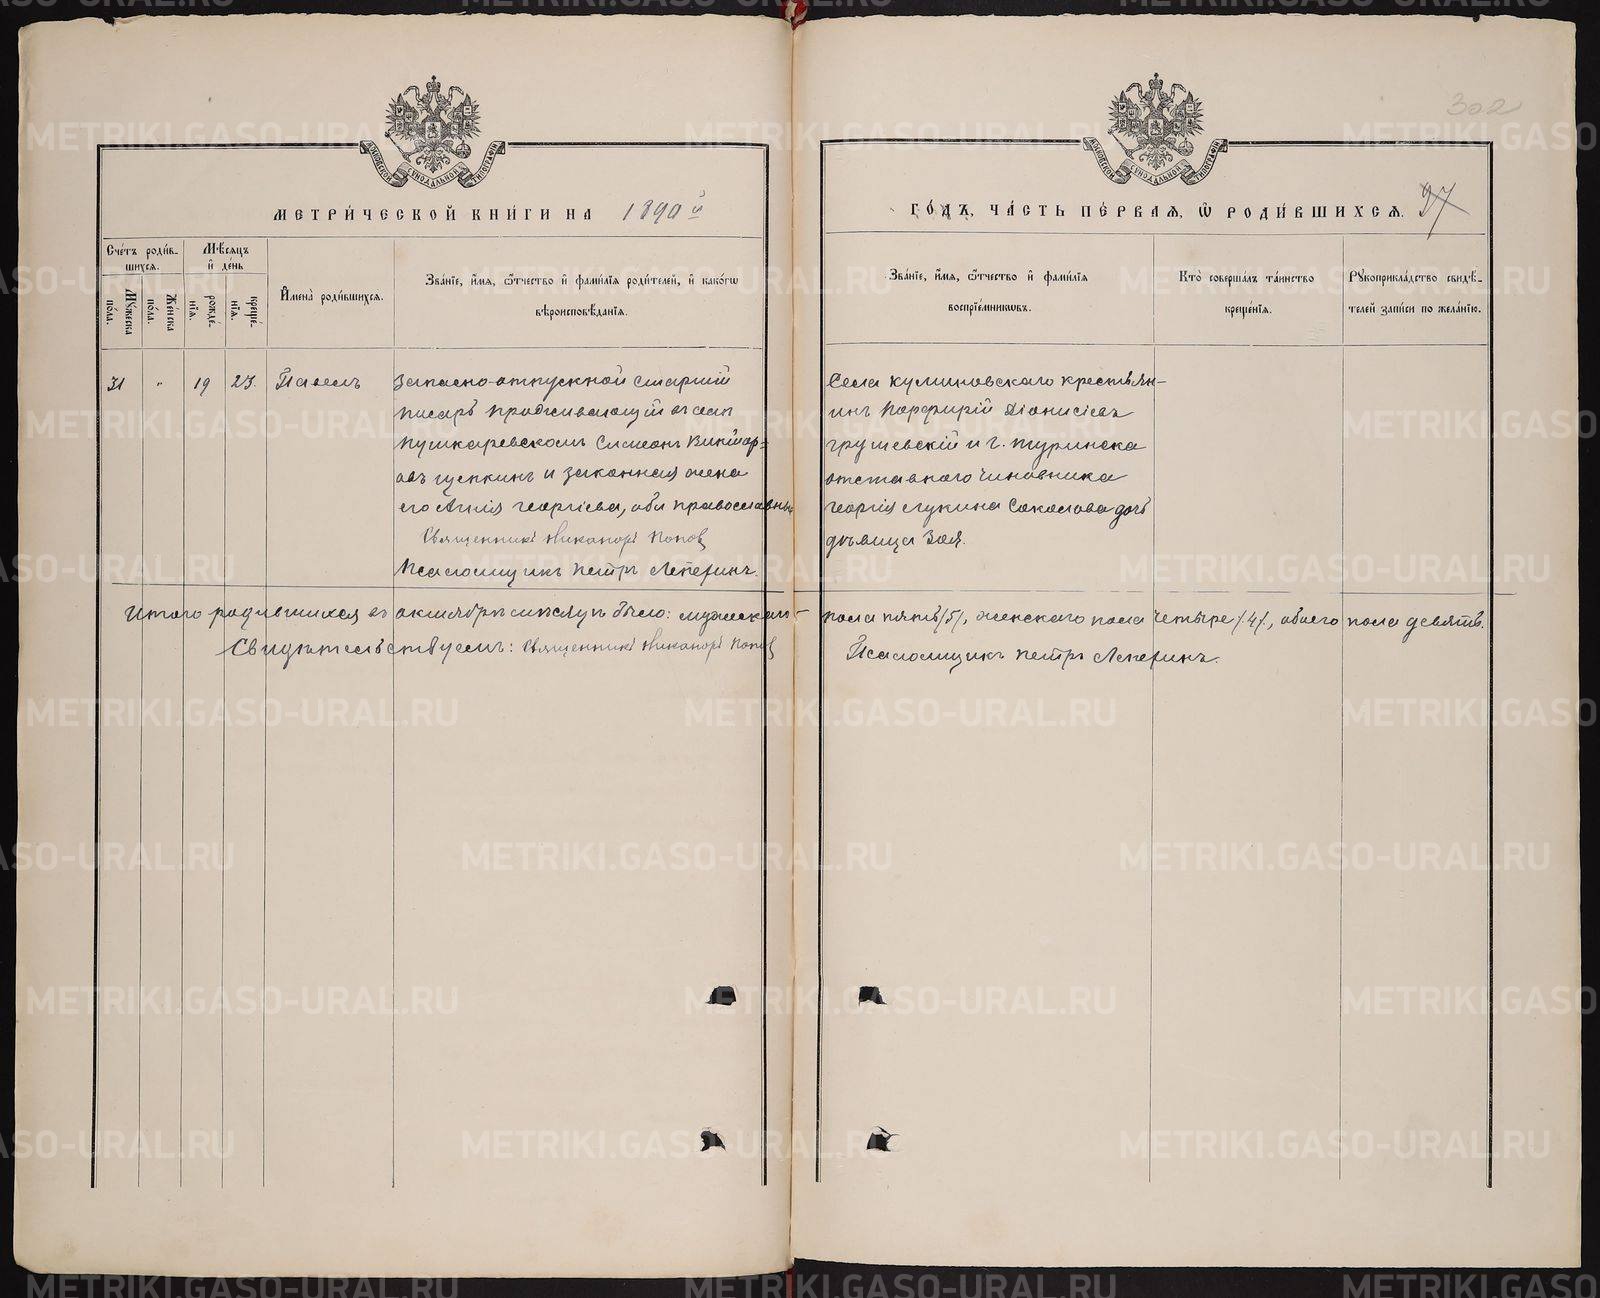 302
МЕТРИ́ЧЕСКОЙ КНИ́ГИ НА 1890 й
ГО́ДЪ, ЧА́СТЬ ПЕ́РВАЯ, Ѡ҆ РОДИ́ВШИХСЯ. 97
Сче́тъ роди́в-
шихся.
Мѣ́сяцъ
и҆ де́нь
Мꙋ́жеска по́ла.
Же́нска по́ла.
рожде́-нїѧ.
креще́-нїѧ.
И҆мена̀ роди́вшихся.
Зва́нїе, и҆́мя, ѻ҆́тчество и҆ фами́лїя роди́телей, и҆ како́гѡ
вѣроисповѣ́данїя.
Зва́нїе, и҆́мя, ѻ҆́тчество и҆ фами́лїя
воспрїе́мникѡвъ.
Кто̀ соверша́лъ та́инство
креще́нїя.
Рꙋкоприкла́дство свидѣ́-
телей за́писи по жела́нїю.
31 " 19 23. Павелъ
Запасно-отпускной старшій
писарь проживающій въ селѣ
Пушкаревскомъ Симеонъ Виктор=
овъ Щепкинъ и законная жена
его Агнія Георгіева, оба православны
Священникъ Никаноръ Попов
Псаломщикъ Петръ Леперинъ.
Села Куминовскаго крестьян-
инъ Порфирій Діонисіевъ
Грушевскій и г. Туринска
отставного чиновника
Георгія Лукина Соколова дочь
дѣвица Зоя.
Итого родившихся въ октябрѣ мѣсяцѣ было: мужеска - пола пять /5/, женскаго пола четыре /4/, обоего пола девять.
Свидѣтельствуемъ: Священникъ Никаноръ Попов Псаломщикъ Петръ Леперинъ.
METRIKI.GASO-URAL.RU